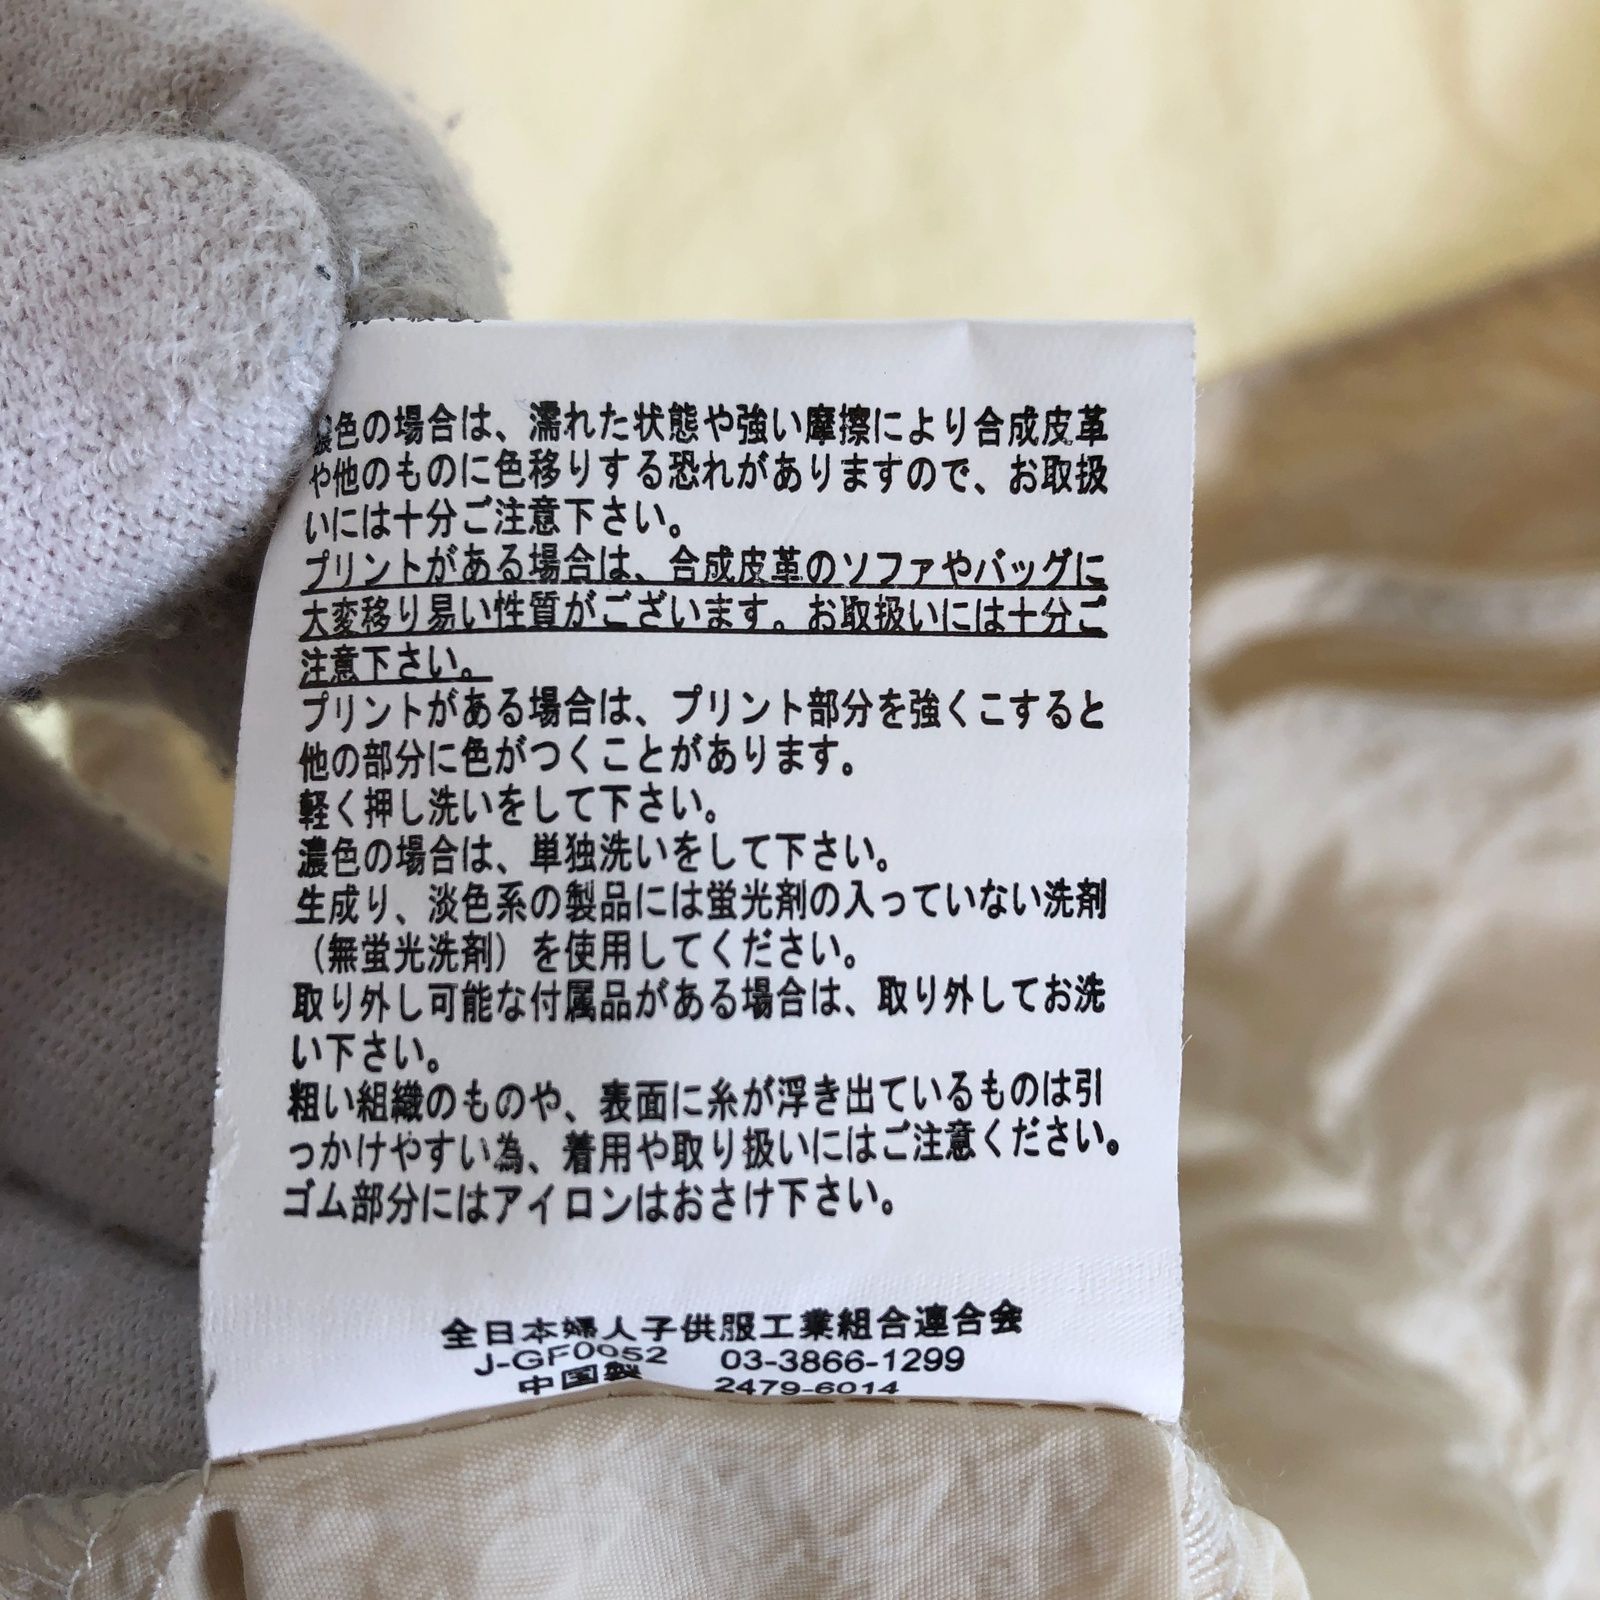 濃色の場合は、濡れた状態や強い摩擦により合成皮革
や他のものに色移りする恐れがありますので、お取扱
いには十分ご注意下さい。
プリントがある場合は、合成皮革のソファやバッグに
大変移り易い性質がございます。お取扱いには十分ご
注意下さい。
プリントがある場合は、プリント部分を強くこすると
他の部分に色がつくことがあります。
軽く押し洗いをして下さい。
濃色の場合は、単独洗いをして下さい。
生成り、淡色系の製品には蛍光剤の入っていない洗剤
（無蛍光洗剤）を使用してください。
取り外し可能な付属品がある場合は、取り外してお洗
い下さい。
粗い組織のものや、表面に糸が浮き出ているものは引
っかけやすい為、着用や取り扱いにはご注意ください。
ゴム部分にはアイロンはおさけ下さい。
全日本婦人子供服工業組合連合会
J-GF0052 03-3866-1299
中国製 2479-6014